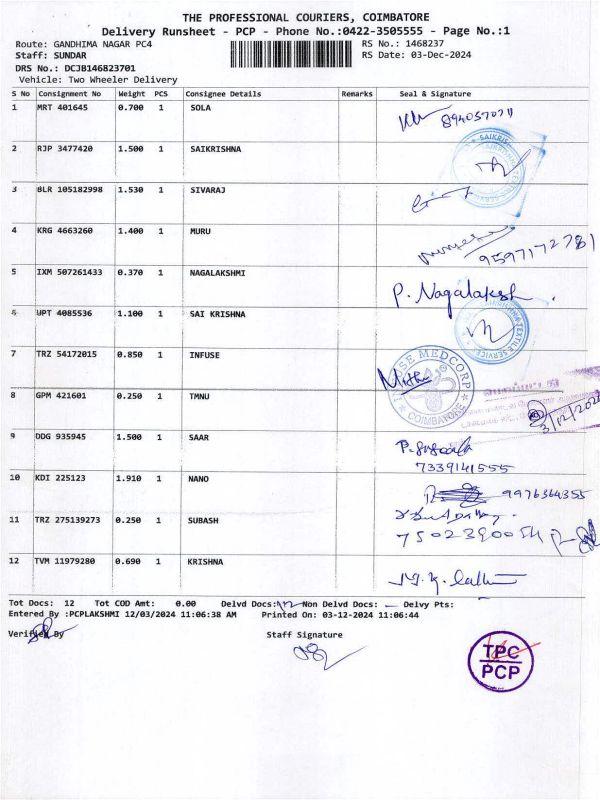 THE PROFESSIONAL COURIERS, COIMBATORE
Delivery Runsheet - PCP - Phone No.:0422-3505555 - Page No.:1
Route: GANDHIMA NAGAR PC4 RS No.: 1468237
Staff: SUNDAR RS Date: 03-Dec-2024
DRS No.: DCJB146823701
Vehicle: Two Wheeler Delivery
S No Consignment No Weight PCS Consignee Details Remarks Seal & Signature
1 MRT 401645 0.700 1 SOLA
2 RJP 3477420 1.500 1 SAIKRISHNA
3 BLR 105182998 1.530 1 SIVARAJ
4 KRG 4663260 1.400 1 MURU
9597172781
5 IXM 507261433 0.370 1 NAGALAKSHMI P. Nagalaksh
6 UPT 4085536 1.100 1 SAI KRISHNA
7 TRZ 54172015 0.850 1 INFUSE
MEDCORP COIMBATORE
8 GPM 421601 0.250 1 TMNU
9 DDG 935945 1.500 1 SAAR
7339141555
10 KDI 225123 1.910 1 NANO 9976364355
11 TRZ 275139273 0.250 1 SUBASH
12 TVM 11979280 0.690 1 KRISHNA
Tot Docs: 12 Tot COD Amt: 0.00 Delvd Docs: 12 Non Delvd Docs: — Delvy Pts:
Entered By :PCPLAKSHMI 12/03/2024 11:06:38 AM Printed On: 03-12-2024 11:06:44
Verified By Staff Signature
TPC
PCP